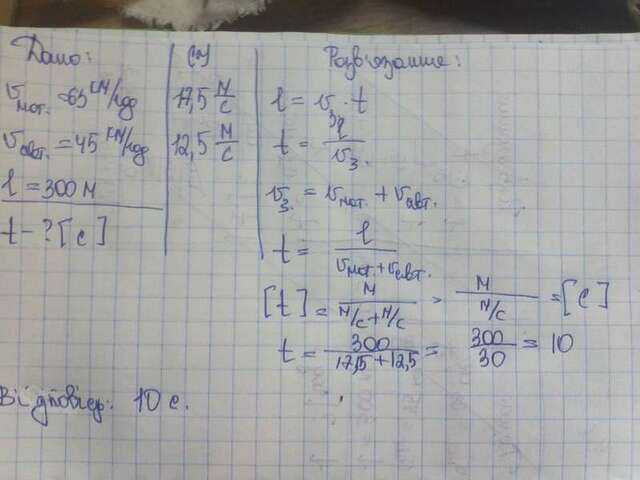 Дано:
υмот. = 63 км/год
υавт. = 45 км/год
l = 300 м
t - ? [с]
СІ
17,5 м/с
12,5 м/с
Розв'язання:
l = υз · t
t = l/υз.
υз. = υмот. + υавт.
t = l/(υмот. + υавт.)
[t] = м/(м/с + м/с) = м/(м/с) = [с]
t = 300/(17,5 + 12,5) = 300/30 = 10
Відповідь: 10 с.